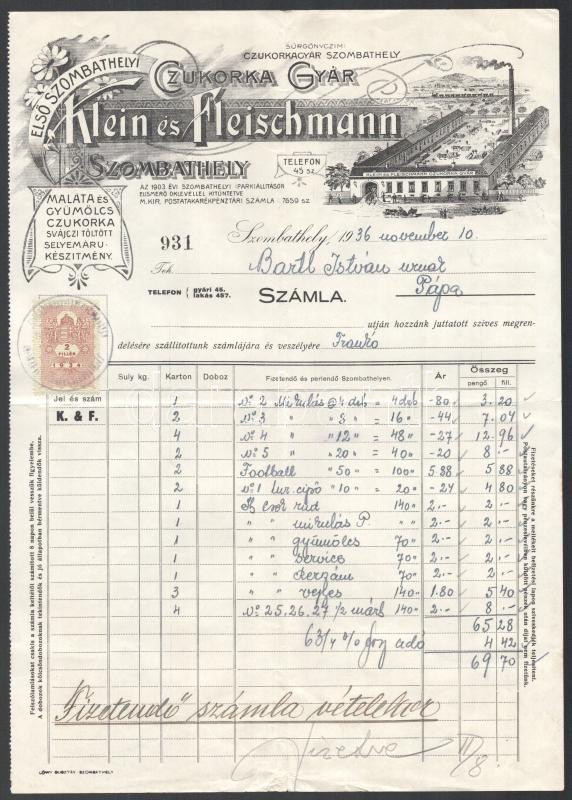 SÜRGÖNYCZIM:
CZUKORKAGYÁR SZOMBATHELY
ELSŐ SZOMBATHELYI
CZUKORKA GYÁR
Klein és Fleischmann
SZOMBATHELY
TELEFON
45 sz.
AZ 1903. ÉVI SZOMBATHELYI IPARKIÁLLITÁSON
ELISMERŐ OKLEVÉLLEL KITÜNTETVE
M. KIR. POSTATAKARÉKPÉNZTÁRI SZÁMLA 7650 sz
MALATA ÉS
GYÜMÖLCS
CZUKORKA
SVÁJCZI TÖLTÖTT
SELYEMÁRU-
KÉSZITMÉNY.
931
Szombathely, 1936 november 10.
Tek. Bartl István urnak
Pápa
TELEFON gyári 45. lakás 457.
SZÁMLA.
utján hozzánk juttatott szives megren-
delésére szállitottunk számlájára és veszélyére Franko
2
FILLÉR
1934
Jel és szám Suly kg. Karton Doboz Fizetendő és perlendő Szombathelyen. Ár Összeg
pengő fill.
K. & F.
1 No 2 Mikulás @ 4 dob = 4 dob -80 3.20
2 No 3 " " 8 " = 16 " -44 7.04
4 No 4 " " 12 " = 48 " -27 12.96
2 No 5 " " 20 " = 40 " -20 8.-
2 Football " 50 " = 100 " 5.88 5 88
2 No 1 " 10 " = 20 " -24 4 80
1 rud 140 " 2.- 2.-
1 " " mikulás P. " " 2.- 2.-
1 " " gyümölcs 70 " 2.- 2.-
1 " " service 70 " 2.- 2.-
1 " " 70 " 2.- 2.-
3 " " vegyes 140 " 1.80 5 40
4 No 25, 26, 27 140 " 2.- 8.-
65 28
6 3/4 % adó 4 42
69 70
Felszólamlásokat csakis a számla keltétől számitott 8 napon belül veszünk figyelembe.
A dobozok kölcsöndobozoknak tekintendők és jó állapotban bérmentve küldendők vissza.
"Fizetendő" számla vételekor
Fizetve
LŐWY GUSZTÁV SZOMBATHELY